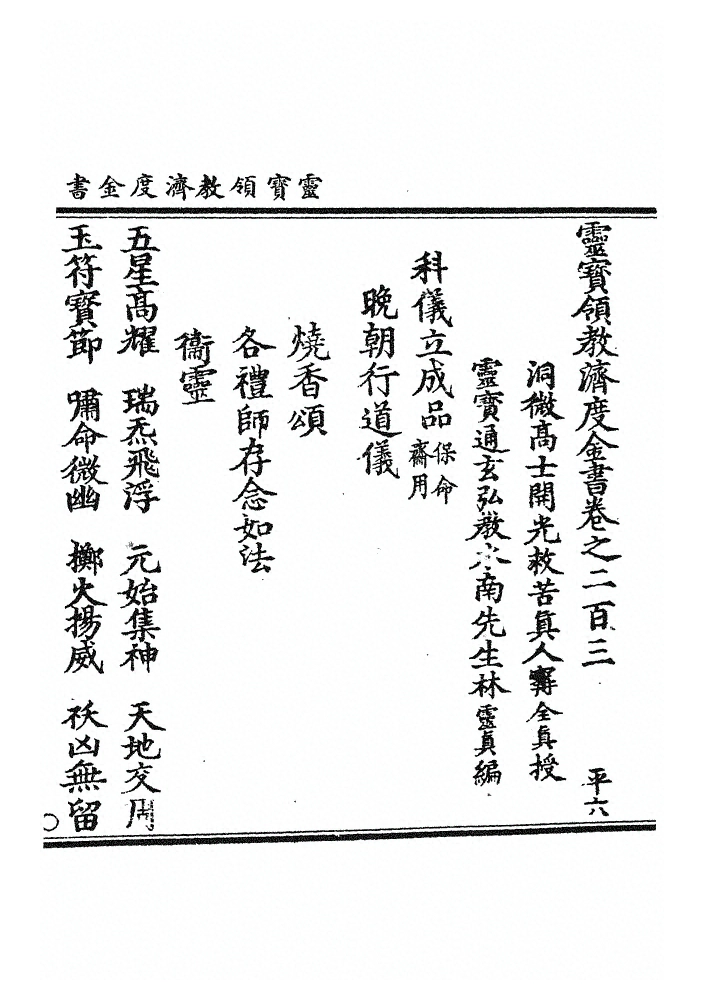 靈寶領教濟度金書
靈寶領教濟度金書卷之二百三 平六
洞微高士開光救苦眞人寗全眞授
靈寶通玄弘教水南先生林靈眞編
科儀立成品保命齋用
晚朝行道儀
燒香頌
各禮師存念如法
衞靈
五星高耀 瑞炁飛浮 元始集神 天地交周
玉符寶節 嘯命微幽 擲火揚威 祅凶無留